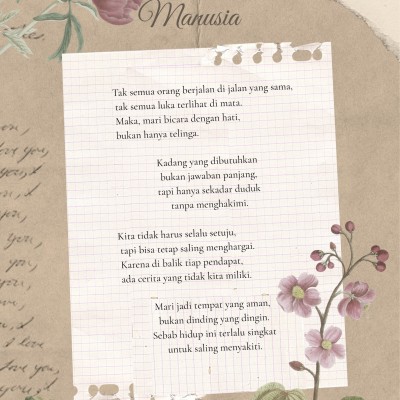 Manusia
Tak semua orang berjalan di jalan yang sama,
tak semua luka terlihat di mata.
Maka, mari bicara dengan hati,
bukan hanya telinga.
Kadang yang dibutuhkan
bukan jawaban panjang,
tapi hanya sekadar duduk
tanpa menghakimi.
Kita tidak harus selalu setuju,
tapi bisa tetap saling menghargai.
Karena di balik tiap pendapat,
ada cerita yang tidak kita miliki.
Mari jadi tempat yang aman,
bukan dinding yang dingin.
Sebab hidup ini terlalu singkat
untuk saling menyakiti.
love you,
you,
love you,
you,
i love